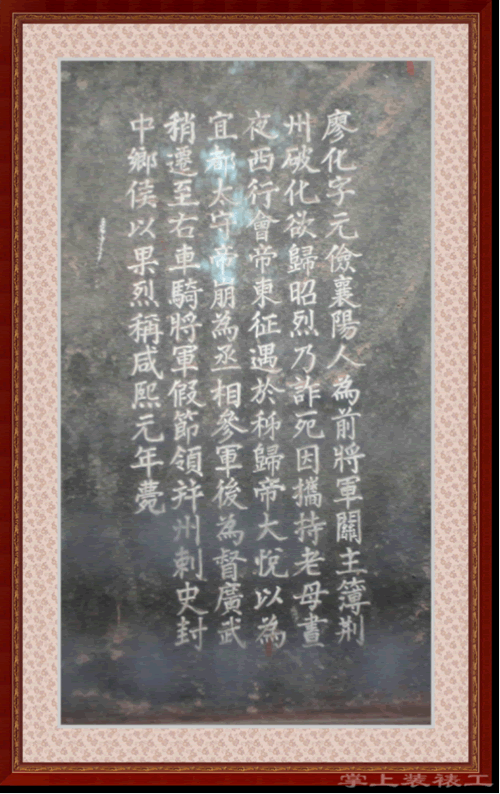 廖化字元儉襄陽人為前將軍關主簿荆
州破化欲歸昭烈乃詐死因攜持老母晝
夜西行會帝東征遇於秭歸帝大悅以為
宜都太守帝崩為丞相參軍後為督廣武
稍遷至右車騎將軍假節領并州刺史封
中鄉侯以果烈稱咸熙元年薨
掌上装裱工